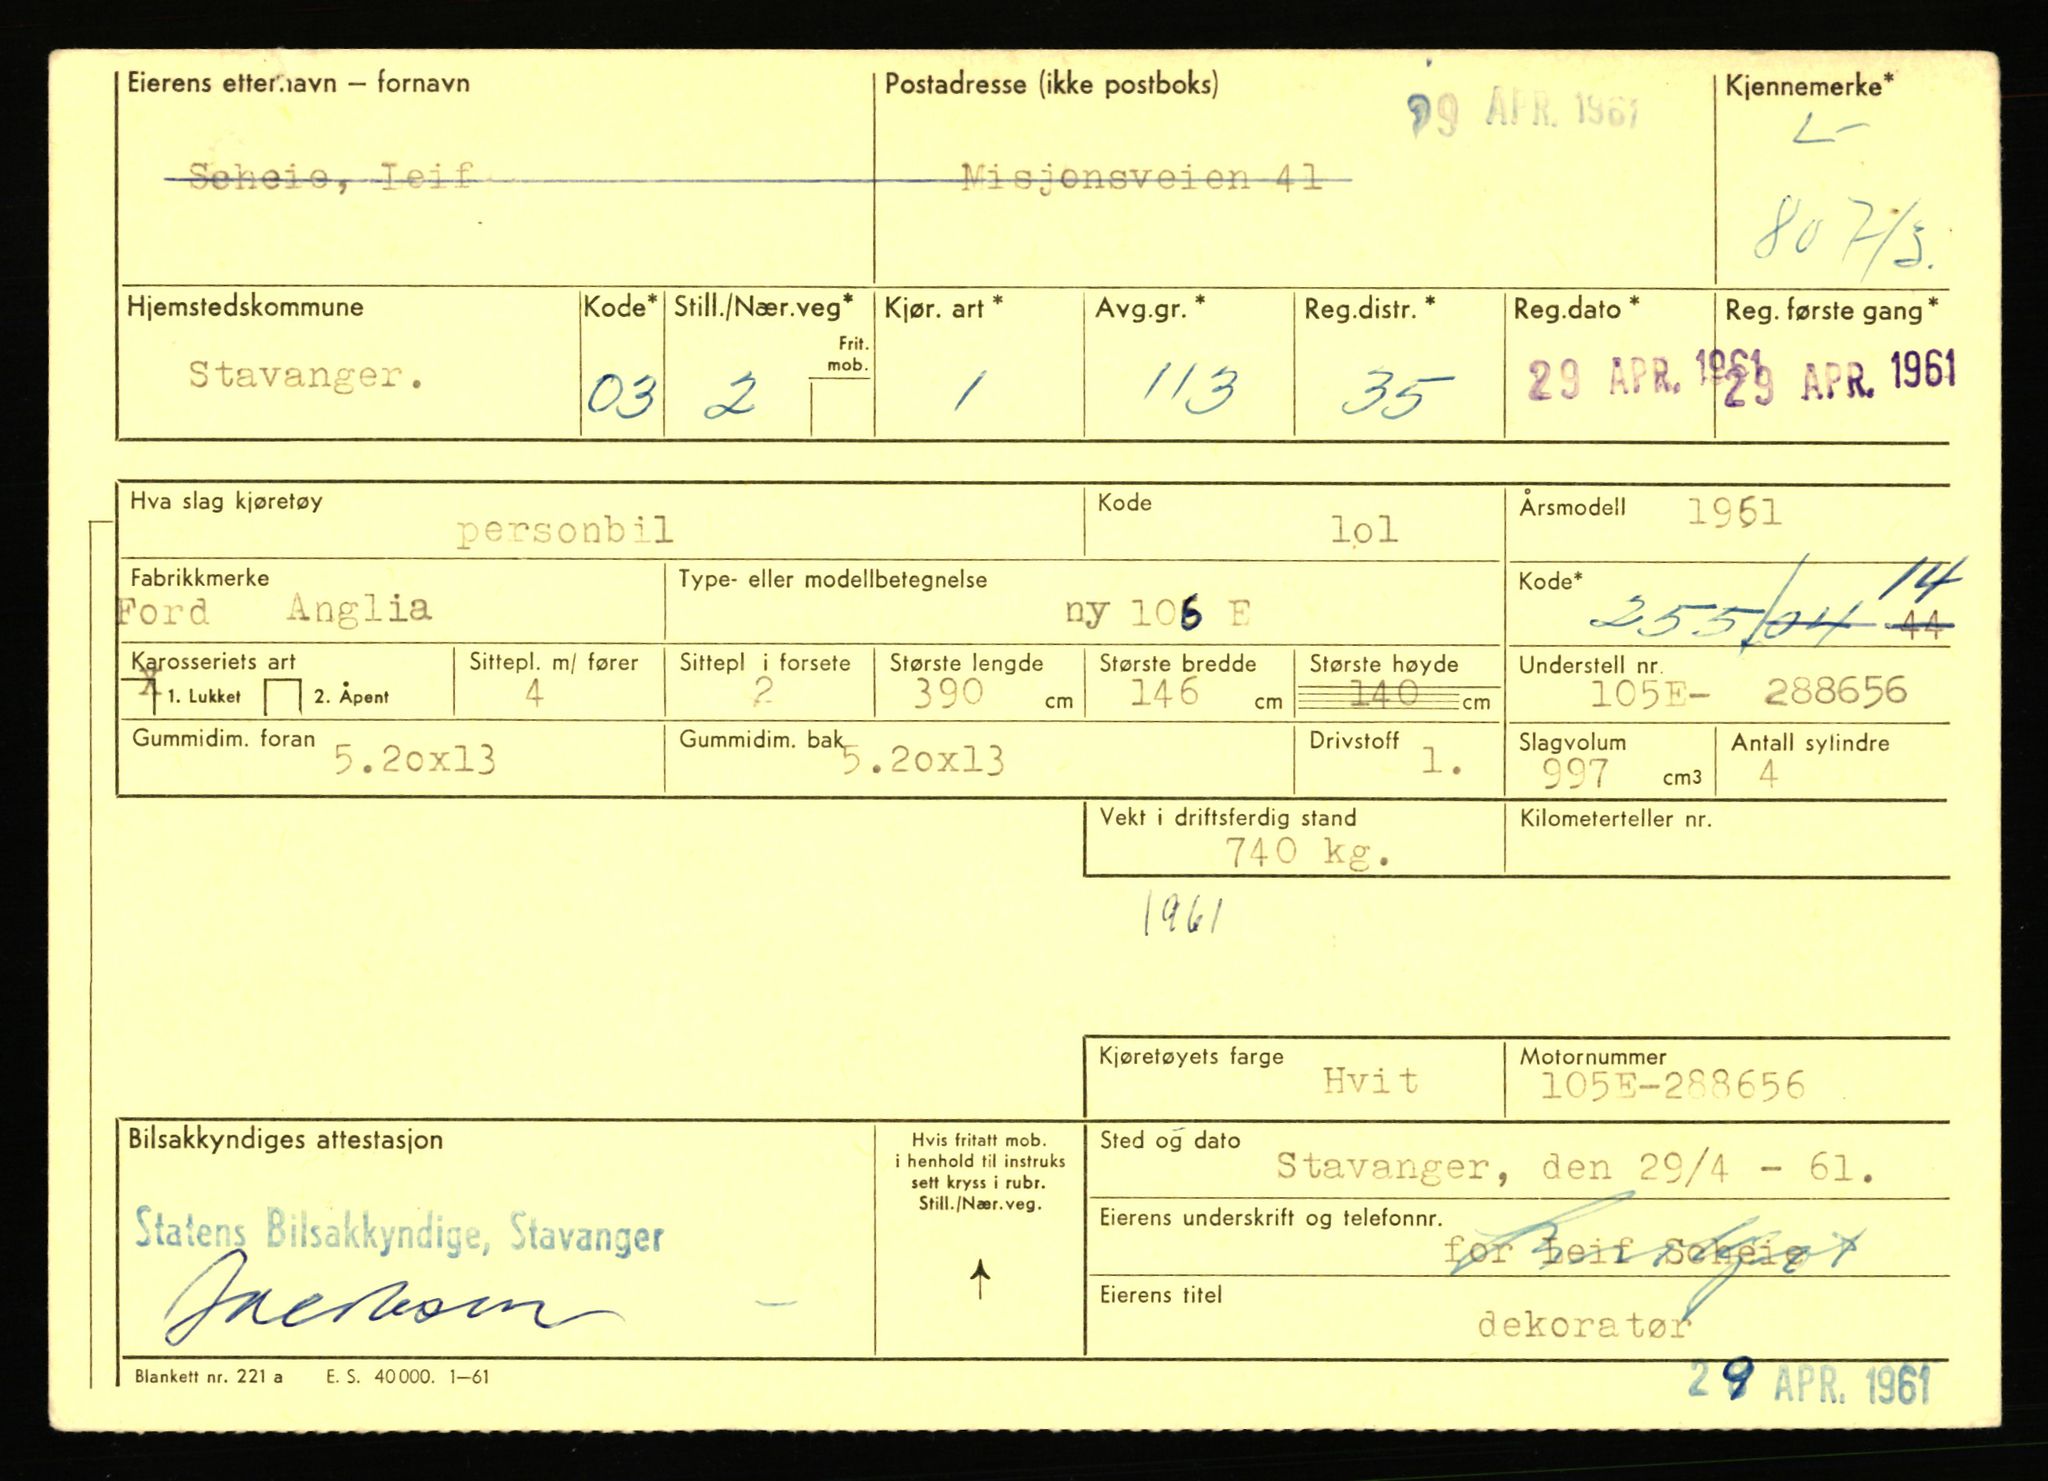 Eierens etternavn – fornavn
Postadresse (ikke postboks)
29 APR. 1961
Kjennemerke*
L-
Scheie, Leif
Misjonsveien 41
80713.
Hjemstedskommune
Kode*
Still./Nær.veg*
Frit. mob.
Kjør. art *
Avg.gr. *
Reg.distr. *
Reg.dato *
Reg. første gang*
Stavanger.
03
2
1
113
35
29 APR. 1961
29 APR. 1961
Hva slag kjøretøy
personbil
Kode
lol
Årsmodell
1961
Fabrikkmerke
Ford Anglia
Type- eller modellbetegnelse
ny 106 E
Kode*
255/04 44
14
Karosseriets art
X 1. Lukket 2. Åpent
Sittepl. m/ fører
4
Sittepl i forsete
2
Største lengde
390 cm
Største bredde
146 cm
Største høyde
140 cm
Understell nr.
105E- 288656
Gummidim. foran
5.20x13
Gummidim. bak
5.20x13
Drivstoff
1.
Slagvolum
997 cm3
Antall sylindre
4
Vekt i driftsferdig stand
740 kg.
Kilometerteller nr.
1961
Kjøretøyets farge
Hvit
Motornummer
105E-288656
Bilsakkyndiges attestasjon
Statens Bilsakkyndige, Stavanger
Hvis fritatt mob.
i henhold til instruks
sett kryss i rubr.
Still./Nær.veg.
Sted og dato
Stavanger, den 29/4 - 61.
Eierens underskrift og telefonnr.
for Leif Scheie
Eierens titel
dekoratør
Blankett nr. 221 a E. S. 40000. 1–61
29 APR. 1961